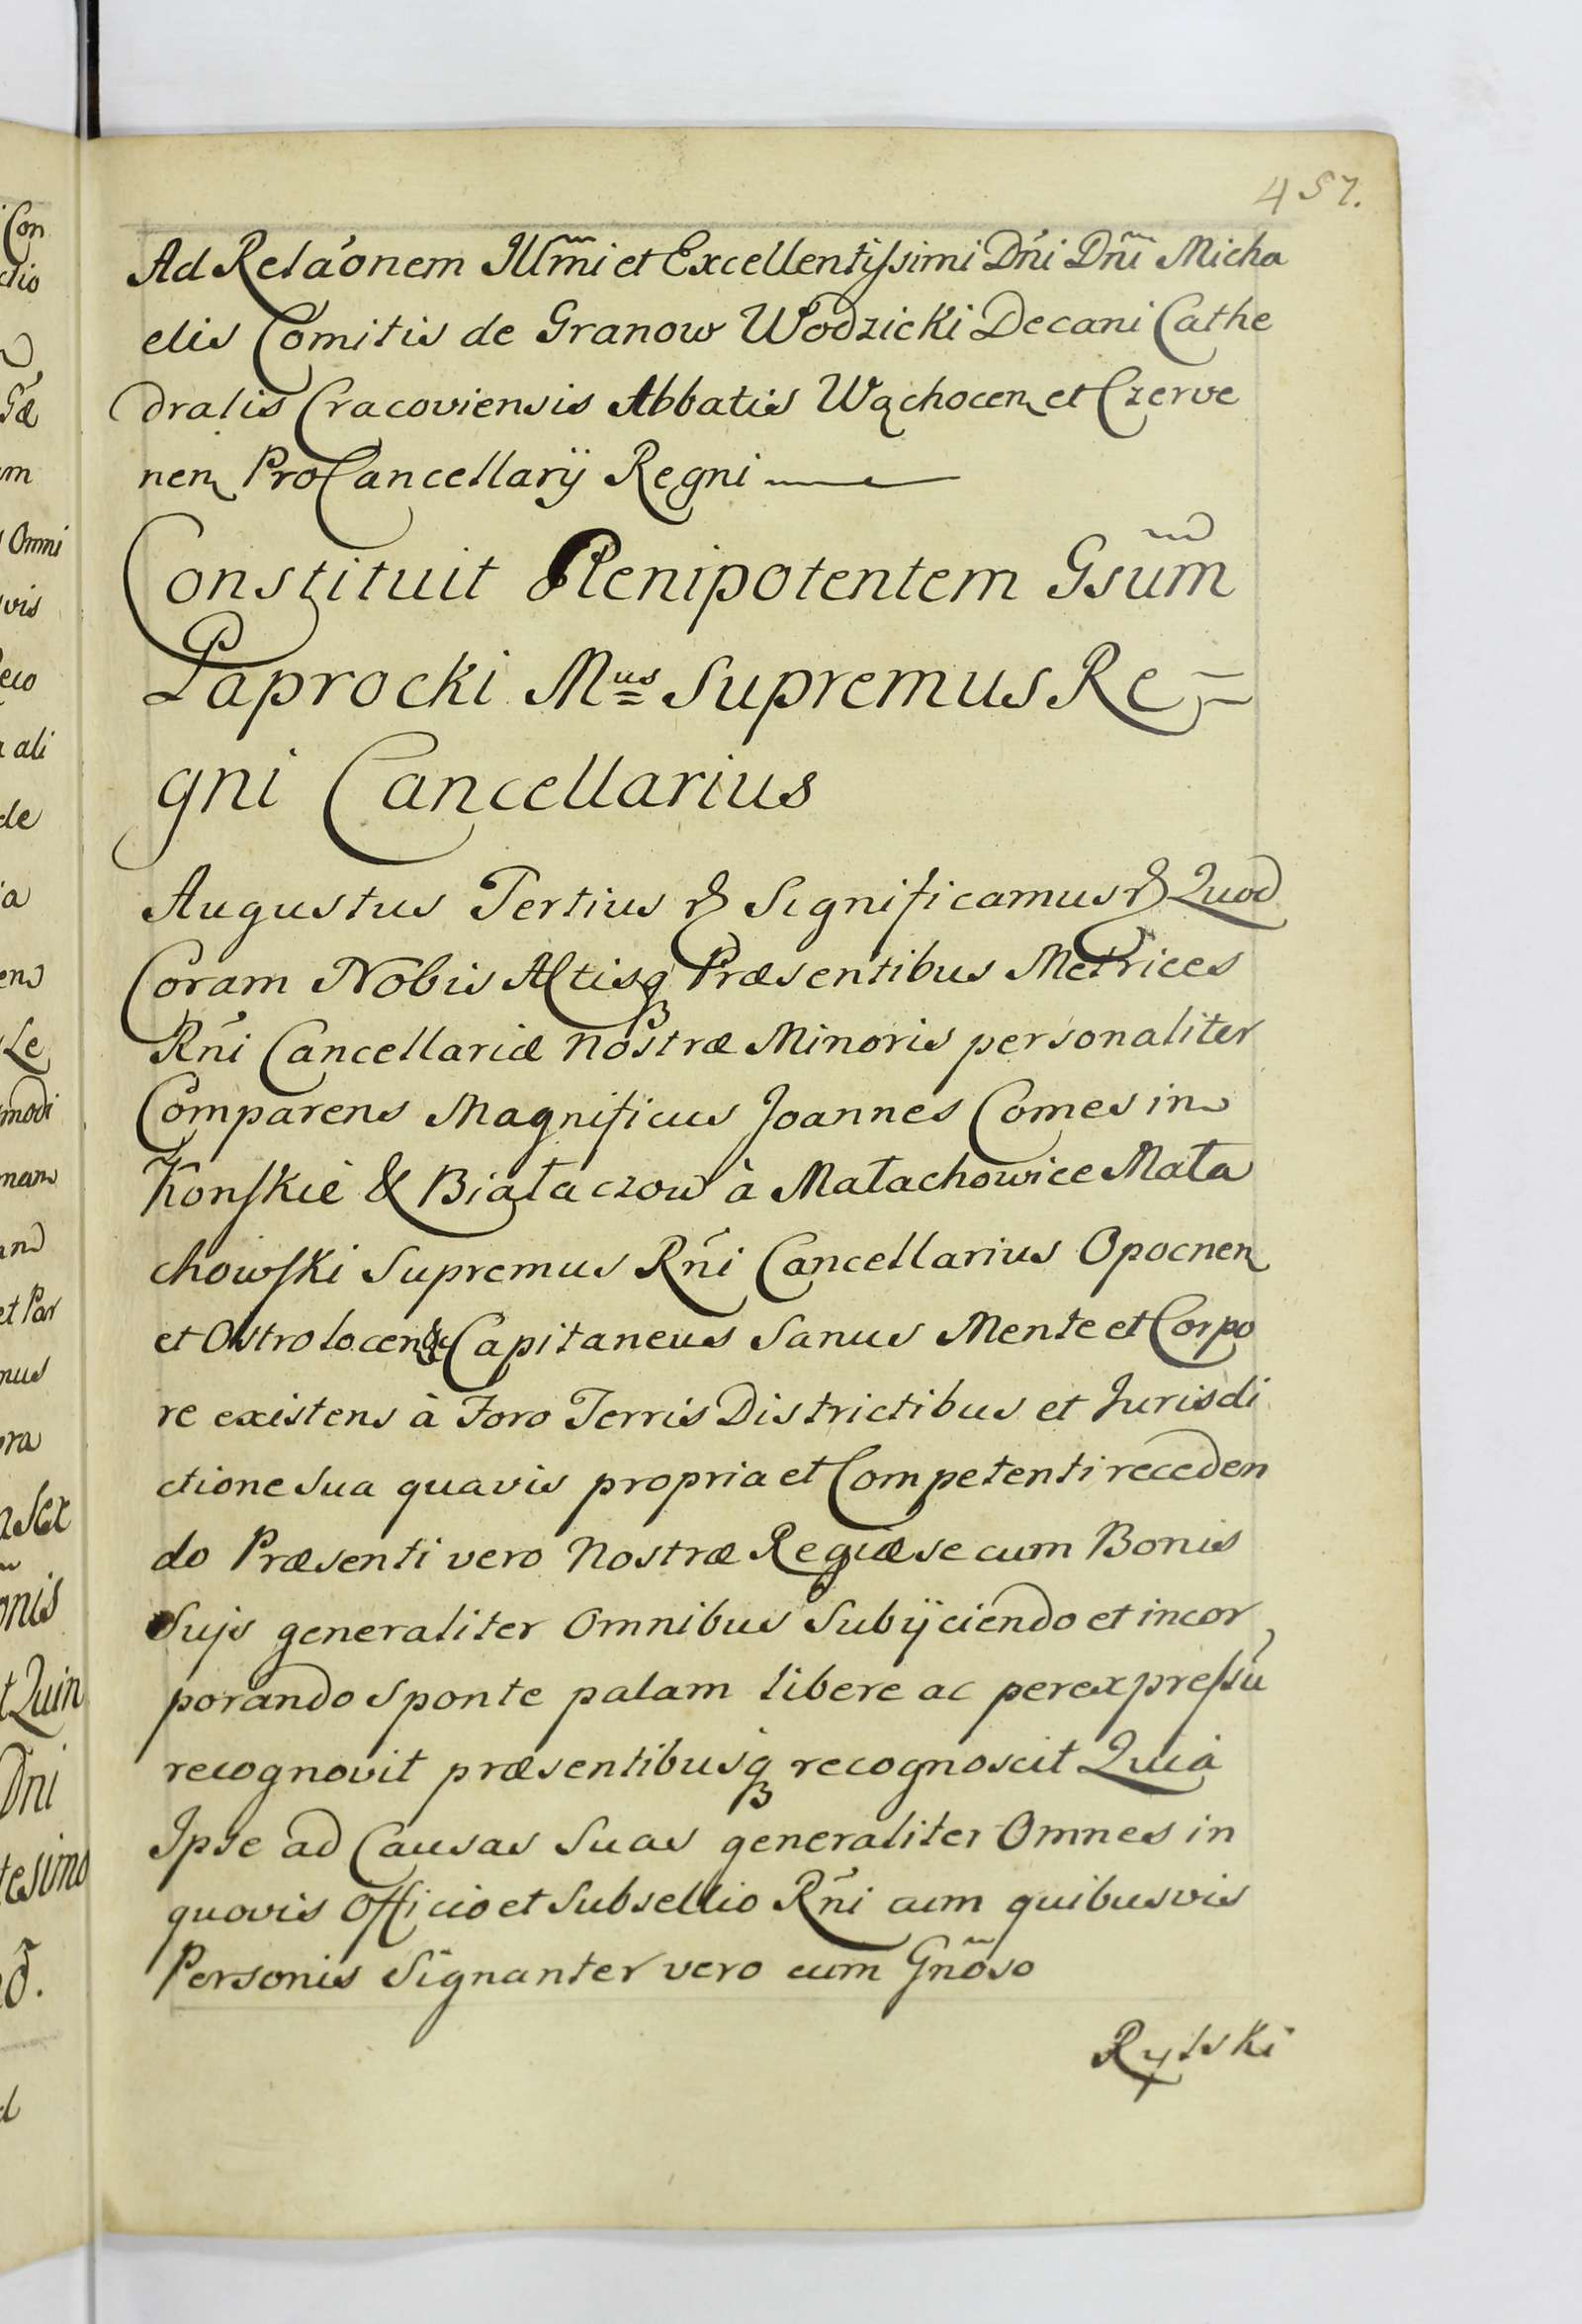 457.
Ad Relãonem Illm̃i et Excellentissimi Dñi Dñi Micha
elis Comitis de Granow Wodzicki Decani Cathe
dralis Cracoviensis Abbatis Wąchocen et Czerve
nen ProCancellarij Regni
Constituit Plenipotentem Gsum̃
Paprocki Mus Supremus Re=
gni Cancellarius
Augustus Tertius & Significamus & Quod
Coram Nobis Actisq Præsentibus Metrices
Rñi Cancellariæ Nostræ Minoris personaliter
Comparens Magnificus Joannes Comes in
Konskie & Białaczow à Małachowice Mała
chowski Supremus Rñi Cancellarius Opocnen
et Ostrolocen & Capitaneus Sanus Mente et Corpo
re existens à Foro Terris Districtibus et Jurisdi
ctione sua quavis propria et Competenti receden
do Præsenti vero Nostræ Regiæ se cum Bonis
Sujs generaliter Omnibus Subijciendo et incor
porando sponte palam libere ac per expressũ
recognovit præsentibusq recognoscit Quia
Ipse ad Causas Suas generaliter Omnes in
quovis Officio et Subsellio Rñi cum quibusvis
Personis Signanter vero cum Gñoso
Rylski
Con
ctio
Gæ
m
Omni
vis
reco
a ali
de
ia
ens
Le
modi
nam
and
et Par
nus
ora
a Sex
onis
t Quin
Dni
tesimo